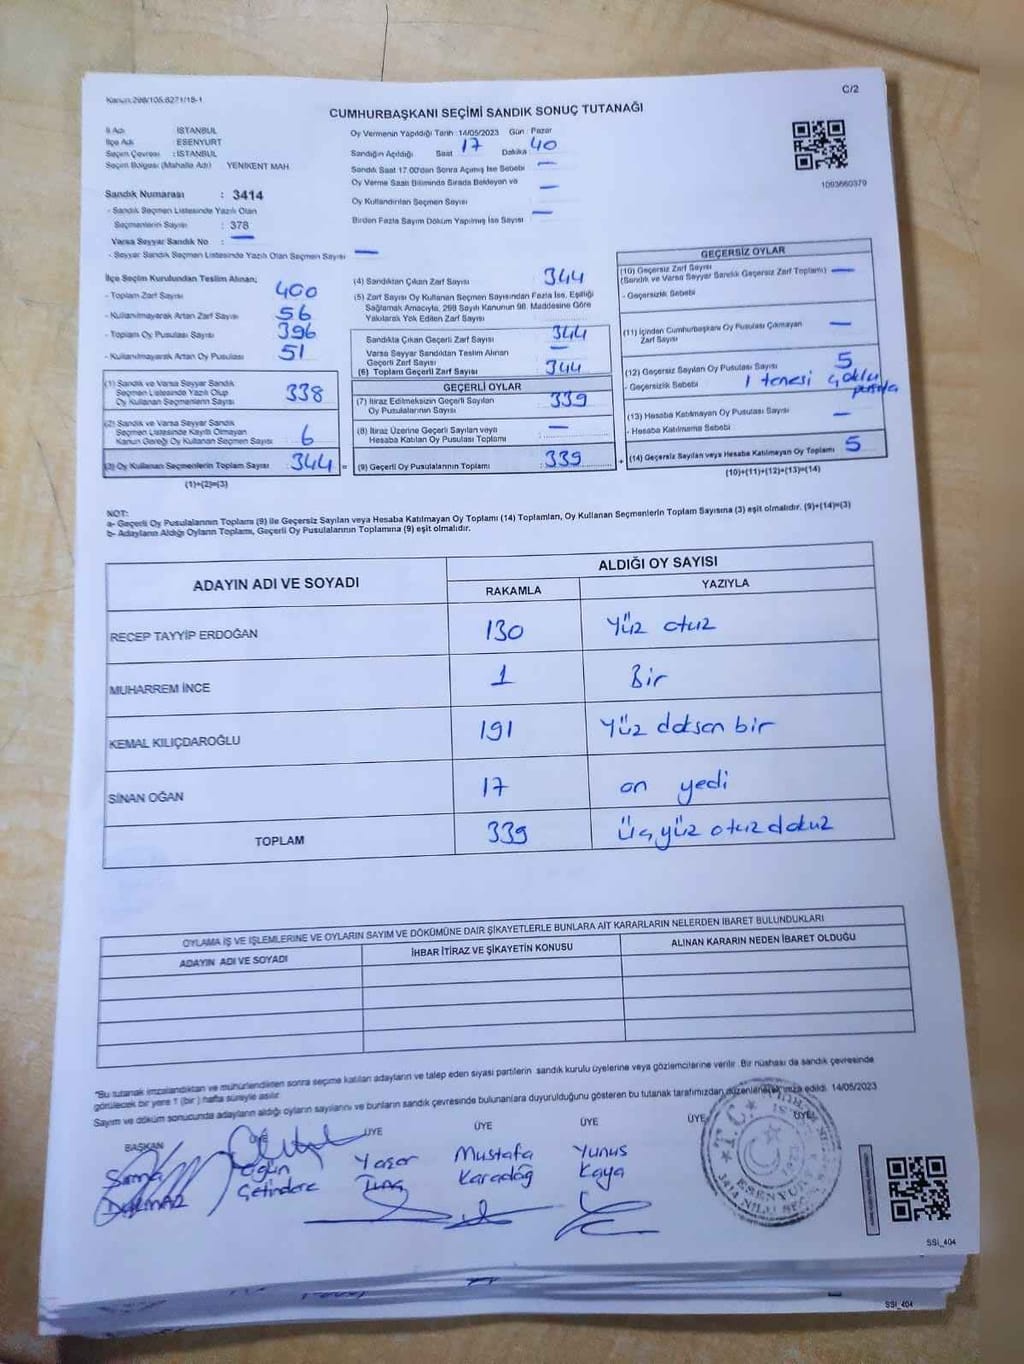 Kanun:298/105,6271/18-1
C/2
CUMHURBAŞKANI SEÇİMİ SANDIK SONUÇ TUTANAĞI
İl Adı : İSTANBUL
İlçe Adı : ESENYURT
Seçim Çevresi : İSTANBUL
Seçim Bölgesi (Mahalle Adı) YENİKENT MAH
Sandık Numarası : 3414
- Sandık Seçmen Listesinde Yazılı Olan
Seçmenlerin Sayısı : 378
Varsa Seyyar Sandık No : —
- Seyyar Sandık Seçmen Listesinde Yazılı Olan Seçmen Sayısı —
Oy Vermenin Yapıldığı Tarih : 14/05/2023 Gün : Pazar
Sandığın Açıldığı Saat 17 Dakika 40
Sandık Saat 17.00'den Sonra Açılmış İse Sebebi —
Oy Verme Saati Bitiminde Sırada Bekleyen ve
Oy Kullandırılan Seçmen Sayısı —
Birden Fazla Sayım Döküm Yapılmış İse Sayısı —
1093660379
İlçe Seçim Kurulundan Teslim Alınan;
- Toplam Zarf Sayısı 400
- Kullanılmayarak Artan Zarf Sayısı 56
- Toplam Oy Pusulası Sayısı 396
- Kullanılmayarak Artan Oy Pusulası 51
(1) Sandık ve Varsa Seyyar Sandık
Seçmen Listesinde Yazılı Olup
Oy Kullanan Seçmenlerin Sayısı 338
(2) Sandık ve Varsa Seyyar Sandık
Seçmen Listesinde Kayıtlı Olmayan
Kanun Gereği Oy Kullanan Seçmen Sayısı 6
(3) Oy Kullanan Seçmenlerin Toplam Sayısı 344 =
(1)+(2)=(3)
(4) Sandıktan Çıkan Zarf Sayısı 344
(5) Zarf Sayısı Oy Kullanan Seçmen Sayısından Fazla İse, Eşitliği
Sağlamak Amacıyla, 298 Sayılı Kanunun 98. Maddesine Göre
Yakılarak Yok Edilen Zarf Sayısı
Sandıkta Çıkan Geçerli Zarf Sayısı 344
Varsa Seyyar Sandıktan Teslim Alınan
Geçerli Zarf Sayısı —
(6) Toplam Geçerli Zarf Sayısı 344
GEÇERLİ OYLAR
(7) İtiraz Edilmeksizin Geçerli Sayılan
Oy Pusulalarının Sayısı 339
(8) İtiraz Üzerine Geçerli Sayılan veya
Hesaba Katılan Oy Pusulası Toplamı : —
(9) Geçerli Oy Pusulalarının Toplamı : 339 +
GEÇERSİZ OYLAR
(10) Geçersiz Zarf Sayısı
(Sandık ve Varsa Seyyar Sandık Geçersiz Zarf Toplamı) —
- Geçersizlik Sebebi
(11) İçinden Cumhurbaşkanı Oy Pusulası Çıkmayan
Zarf Sayısı —
(12) Geçersiz Sayılan Oy Pusulası Sayısı 5
- Geçersizlik Sebebi 1 tenesi çoklu
pusula
(13) Hesaba Katılmayan Oy Pusulası Sayısı —
- Hesaba Katılmama Sebebi
(14) Geçersiz Sayılan veya Hesaba Katılmayan Oy Toplamı 5
(10)+(11)+(12)+(13)=(14)
NOT:
a- Geçerli Oy Pusulalarının Toplamı (9) ile Geçersiz Sayılan veya Hesaba Katılmayan Oy Toplamı (14) Toplamları, Oy Kullanan Seçmenlerin Toplam Sayısına (3) eşit olmalıdır. (9)+(14)=(3)
b- Adayların Aldığı Oyların Toplamı, Geçerli Oy Pusulalarının Toplamına (9) eşit olmalıdır.
ADAYIN ADI VE SOYADI
ALDIĞI OY SAYISI
RAKAMLA YAZIYLA
RECEP TAYYİP ERDOĞAN 130 Yüz otuz
MUHARREM İNCE 1 Bir
KEMAL KILIÇDAROĞLU 191 Yüz doksan bir
SİNAN OĞAN 17 on yedi
TOPLAM 339 Üçyüz otuz dokuz
OYLAMA İŞ VE İŞLEMLERİNE VE OYLARIN SAYIM VE DÖKÜMÜNE DAİR ŞİKAYETLERLE BUNLARA AİT KARARLARIN NELERDEN İBARET BULUNDUKLARI
ADAYIN ADI VE SOYADI İHBAR İTİRAZ VE ŞİKAYETİN KONUSU ALINAN KARARIN NEDEN İBARET OLDUĞU
"Bu tutanak imzalandıktan ve mühürlendikten sonra seçime katılan adayların ve talep eden siyasi partilerin sandık kurulu üyelerine veya gözlemcilerine verilir. Bir nüshası da sandık çevresinde
görülecek bir yere 1 (bir) hafta süreyle asılır.
Sayım ve döküm sonucunda adayların aldığı oyların sayılarını ve bunların sandık çevresinde bulunanlara duyurulduğunu gösteren bu tutanak tarafımızdan düzenlenerek imza edildi. 14/05/2023
BAŞKAN ÜYE ÜYE ÜYE ÜYE ÜYE ÜYE
Ogün Yaşar Mustafa Yunus
Çetindere Tunç Karadağ Kaya
T.C.
ESENYURT
SSİ_404
SSİ_404